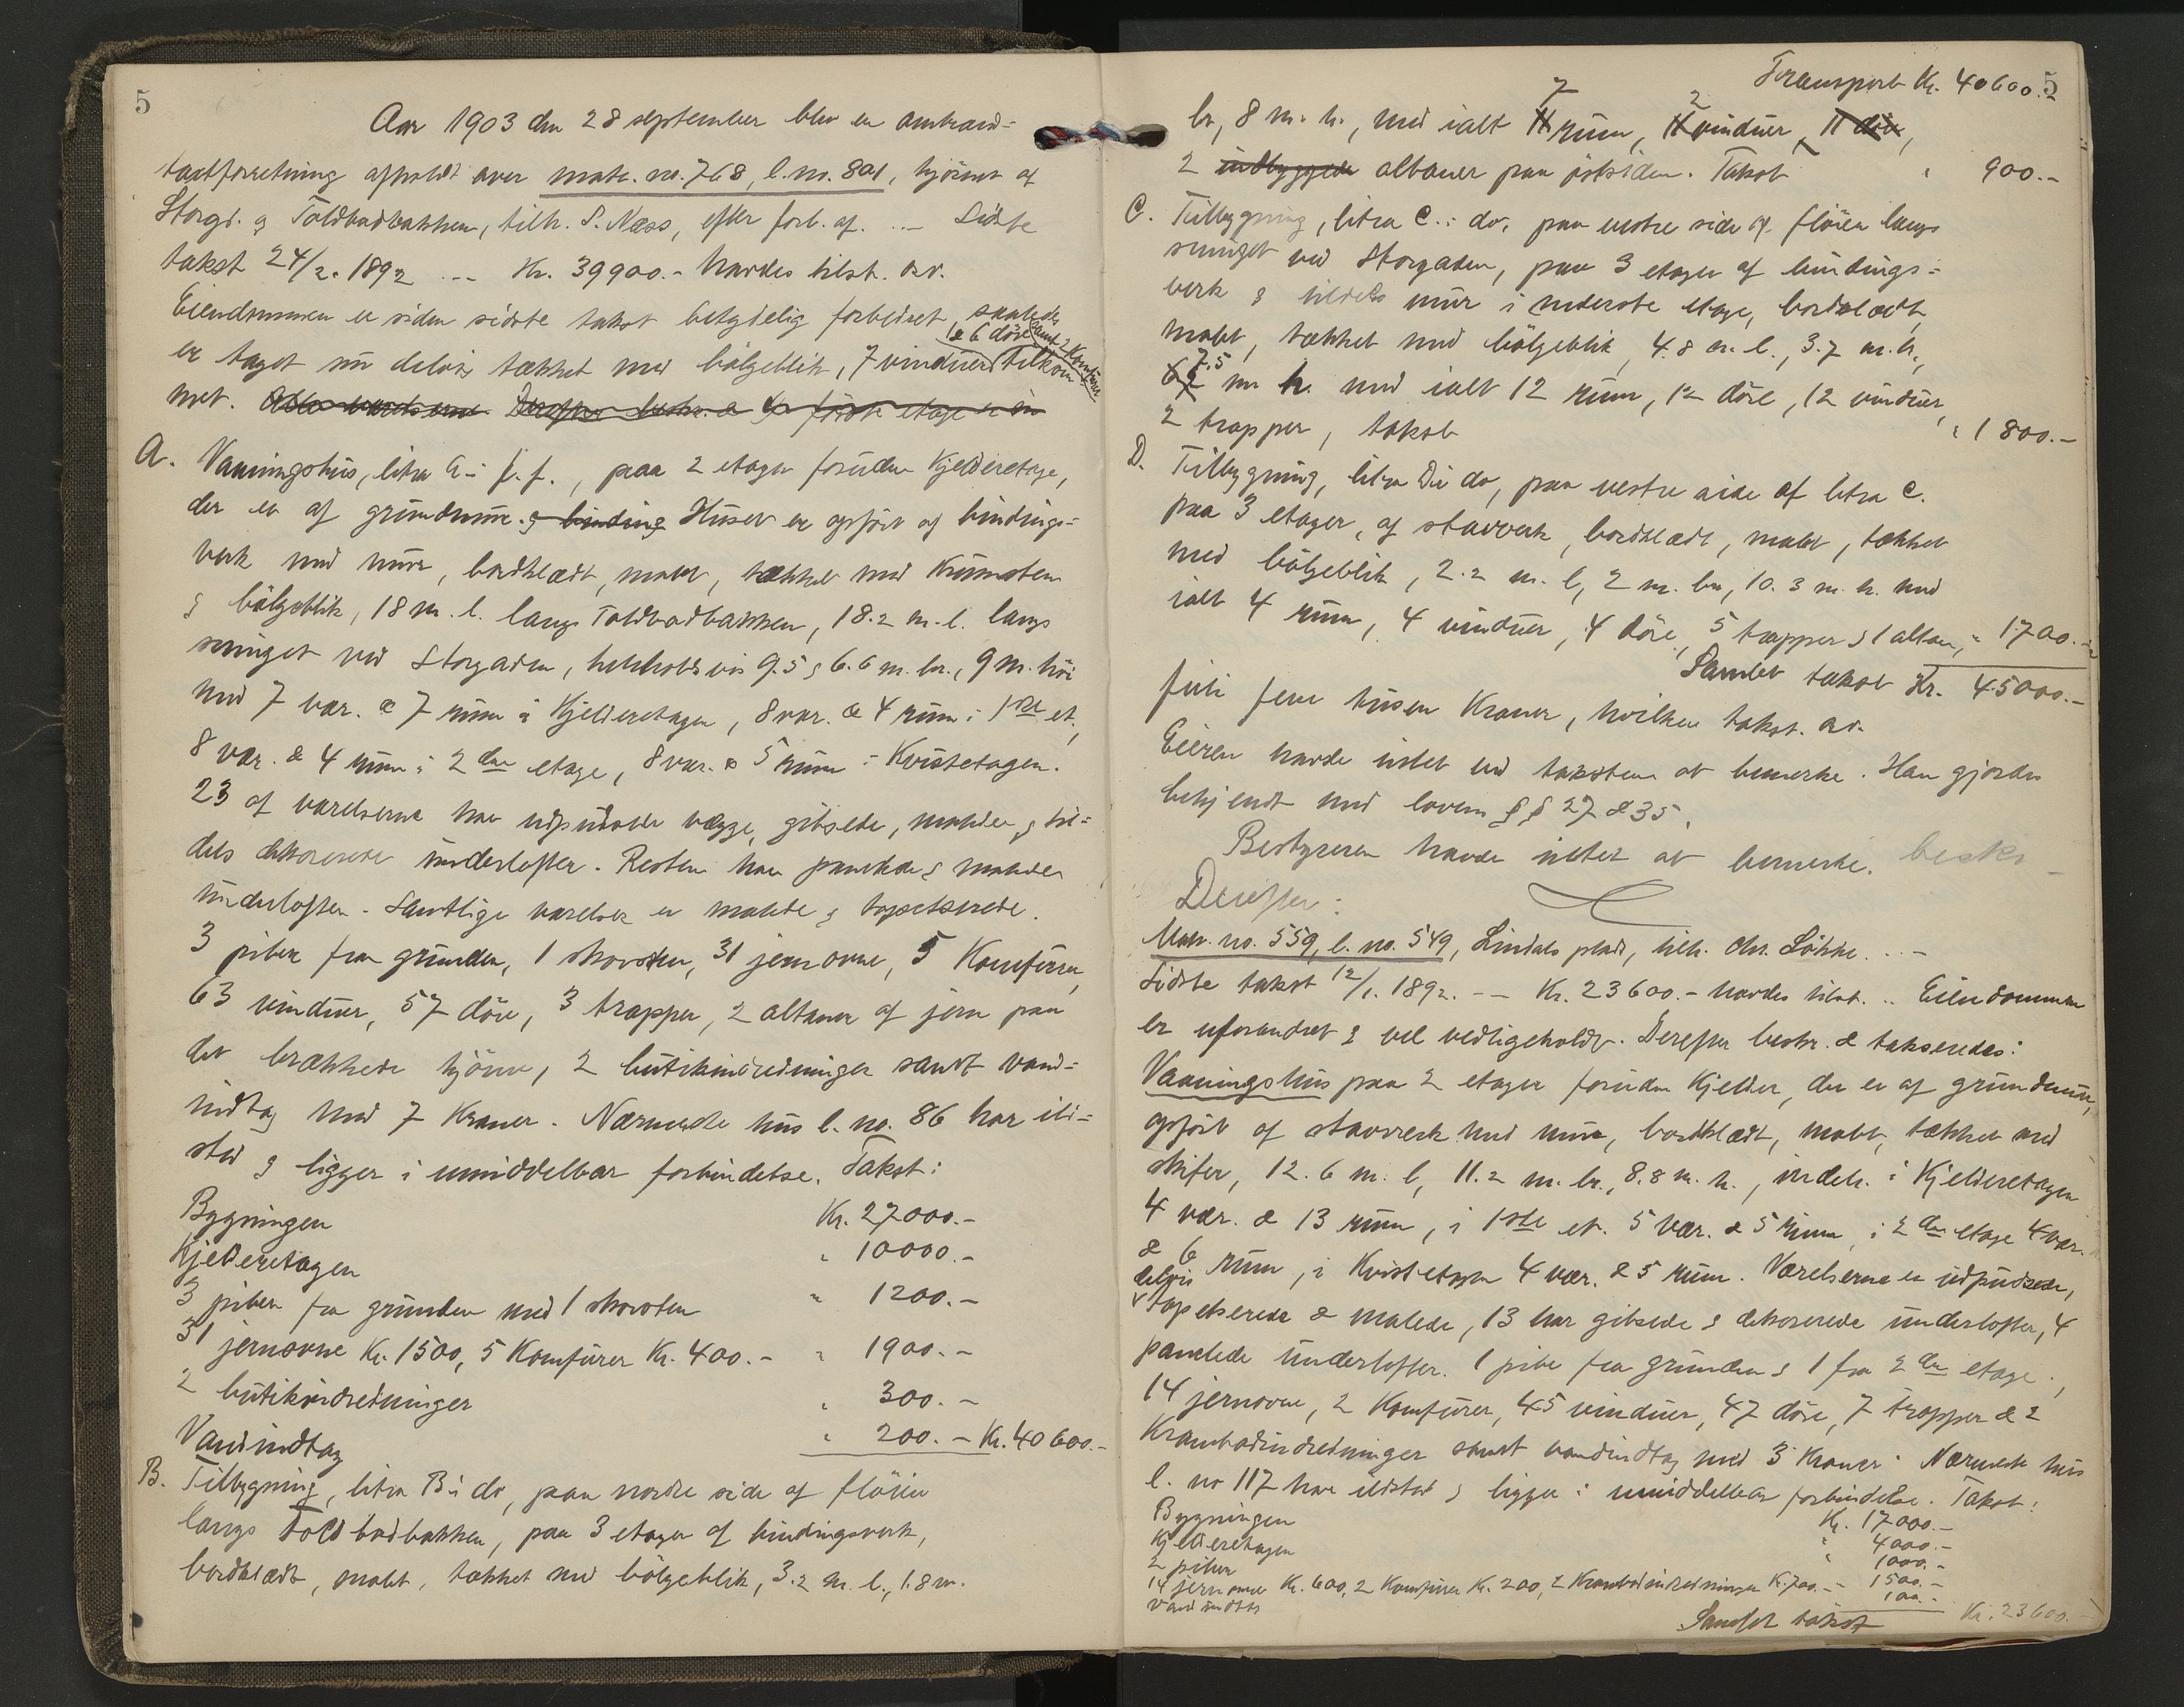 5
Aar 1903 den 28 september blev en ombrand=
taxtforretning afholdt over matr. no. 768, l. no. 801, hjørnet af
Storgd. & Toldbodbakken, tilh. S. Næss, efter forl. af. .. – Sidste
takst 24/2. 1892 .. – Kr. 39900.- havdes tilst. o.v.
Eiendommen er siden sidste takst betydelig forbedret, saaledes
& 6 døre samt 2 Komfurer
er taget nu delvis tækket med bølgeblik, 7 vinduer tilkom=
met.
A. Vaaningshus, litra A i f. f., paa 2 etager foruden Kjelderetage,
der er af grundmur. & binding Huset er opført af bindings=
verk med mur, bordklædt, malet, tækket med Krumsten
& bølgeblik, 18 m. l. langs Toldbodbakken, 18.2 m. l. langs
svinget ved Storgaden, henholdsvis 9.5 & 6.6 m. br., 9 m. høi
med 7 vær. & 7 rum i Kjelderetagen, 8 vær. & 4 rum i 1ste et.,
8 vær. & 4 rum i 2den etage, 8 vær. & 5 rum i Kvistetagen.
23 af værelserne har udpudsede vægge, gibsede, malede & til=
dels dekorerede underlofter. Resten har panelede & malede
underlofter. Samtlige værelser er malede & tapetserede.
3 piber fra grunden, 1 skorsten, 31 jernovne, 5 Komfurer,
63 vinduer, 57 døre, 3 trapper, 2 altaner af jern paa
det brækkede hjørne, 2 butikindredninger samt vand=
indtag med 7 Kraner. Nærmeste hus l. no. 86 har ild=
sted & ligger i umiddelbar forbindelse. Takst:
Bygningen Kr. 27000.-
Kjelderetagen " 10000.-
3 piber fra grunden med 1 skorsten " 1200.-
31 jernovne Kr. 1500, 5 Komfurer Kr. 400.- " 1900.-
2 butikindredninger " 300.-
Vandindtag " 200.- Kr. 40600.-
B. Tilbygning, litra B i do, paa nordre side af fløien
langs Toldbodbakken, paa 3 etager af bindingsverk,
bordklædt, malet, tækket med bølgeblik, 3.2 m. l., 1.8 m.
Transport Kr. 40600.- 5
7 2
br., 8 m. h., med ialt 11 rum, 11 vinduer, 11 døre,
2 indbyggede altaner paa østsiden. Takst " 900.-
C. Tilbygning, litra C i do, paa vestre side af fløien langs
svinget ved Storgaden, paa 3 etager af bindings=
verk & tildels mur i nederste etage, bordklædt,
malet, tækket med bølgeblik, 4.8 m. l., 3.7 m. br.,
7.5
m h. med ialt 12 rum, 12 døre, 12 vinduer,
2 trapper, takst " 1800.-
D. Tilbygning, litra D i do, paa vestre side af litra C.
paa 3 etager, af stavverk, bordklædt, malet, tækket
med bølgeblik, 2.2 m. l., 2 m. br., 10.3 m. h. med
ialt 4 rum, 4 vinduer, 4 døre, 5 trapper & 1 altan, " 1700.-
Samlet takst Kr. 45000.-
firti fem tusen Kroner, hvilken takst. o.v.
Eieren havde intet ved taksten at bemerke. Han gjordes
bekjendt med lovens §§ 27 & 35.
Bestyreren havde intet at bemerke. beskr
Derefter:
Matr. no. 559, l. no. 549, Lindals plads, tilh. Chr. Løkke. .. –
Sidste takst 12/1. 1892. – – Kr. 23600.- havdes tilst. .. Eiendommen
er uforandret & vel vedligeholdt. Derefter beskr. & takseredes:
Vaaningshus paa 2 etager foruden Kjelder, der er af grundmur,
opført af stavverk med mur, bordklædt, malet, tækket med
skifer, 12.6 m. l., 11.2 m. br., 8.8 m. h., indeh. i Kjelderetagen
4 vær. & 13 rum, i 1ste et. 5 vær. & 5 rum, i 2den etage 4 vær.
& 6 rum, i Kvistetagen 4 vær. & 5 rum. Værelserne er udpudsede,
delvis
tapetserede & malede, 13 har gibsede & dekorerede underlofter, 4
panelede underlofter. 1 pibe fra grunden & 1 fra 2den etage.,
14 jernovne, 2 Komfurer, 45 vinduer, 47 døre, 7 trapper & 2
Krambodindredninger samt vandindtag med 3 Kraner. Nærmeste hus
l. no 117 har ildsted & ligger i umiddelbar forbindelse. Takst:
Bygningen Kr. 17000.-
Kjelderetagen " 4000.-
2 piber " 1000.-
14 jernovne Kr. 600, 2 Komfurer Kr. 200, 2 Krambodindredninger Kr. 700.- – 1500.-
Vandindtag 100.-
Samlet takst Kr. 23600.-